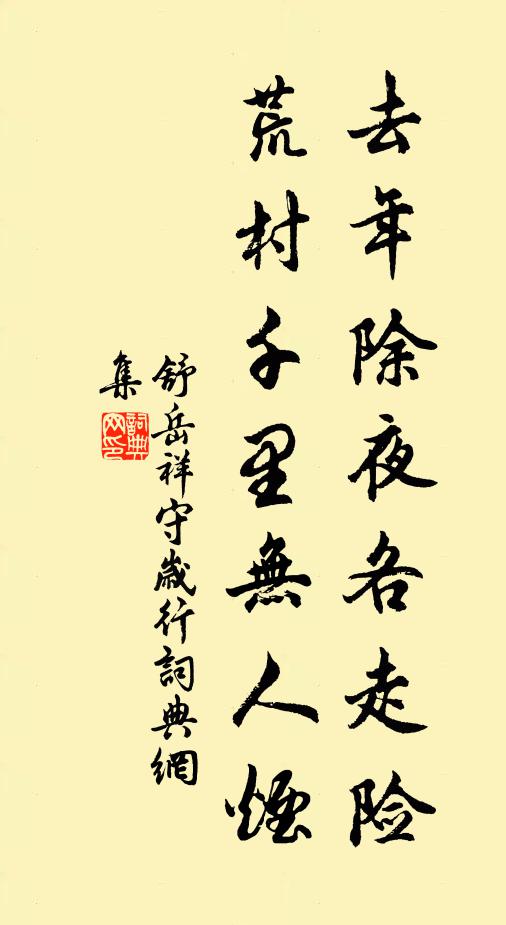 去年除夜各走险
荒村千里無人煙
舒岳祥守歲行詞典網
集
詞典
网印